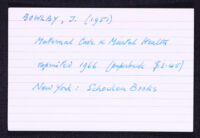 BOWLBY, J. (1951)
Maternal Care & Mental Health
reprinted 1966 (paperback $2.45)
New York: Schocken Books